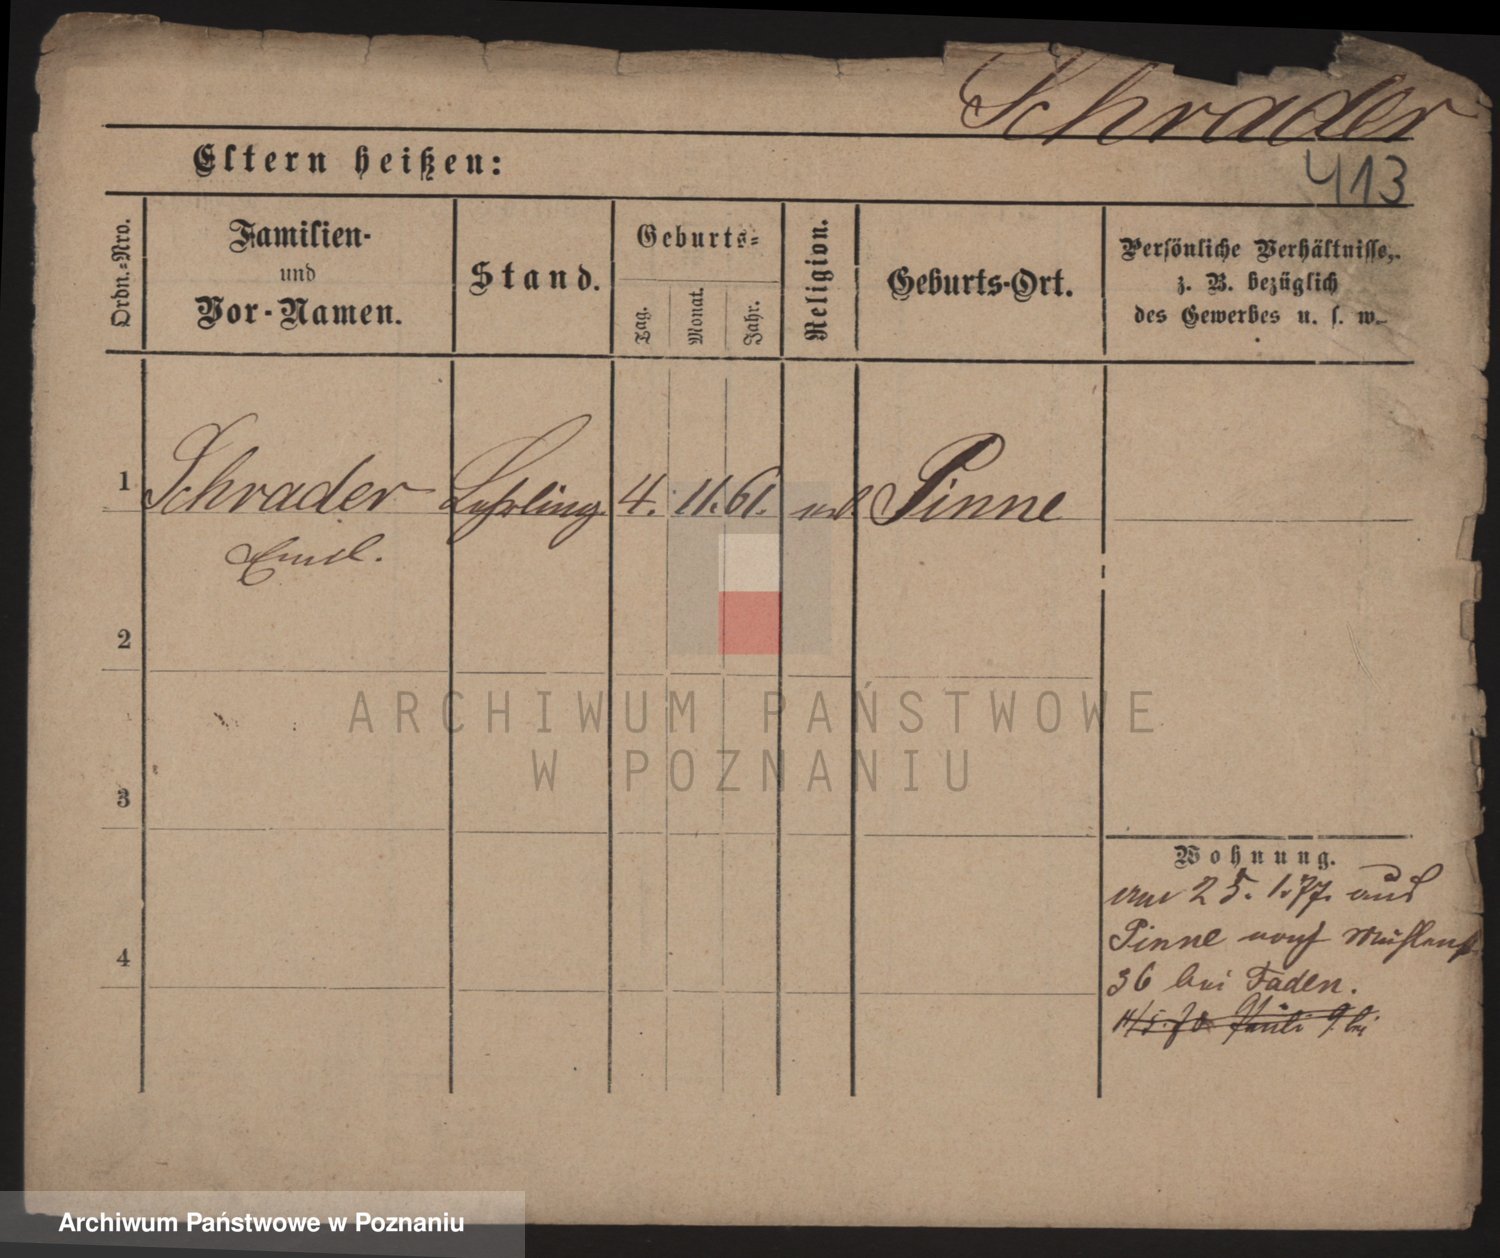 Schrader
413
Eltern heißen:
Ordn.-Nro.
Familien-
und
Vor-Namen.
Stand.
Geburts-
Tag.
Monat.
Jahr.
Religion.
Geburts-Ort.
Persönliche Verhältnisse,
z. B. bezüglich
des Gewerbes u. s. w.
1
Schrader Lehrling 4. 11. 61. Pinne
Emil.
2
3
4
Wohnung.
am 25. 1. 77. aus
Pinne nach Mühlenst.
36 bei Faden.
Pauli 9 bei
ARCHIWUM PAŃSTWOWE
W POZNANIU
Archiwum Państwowe w Poznaniu